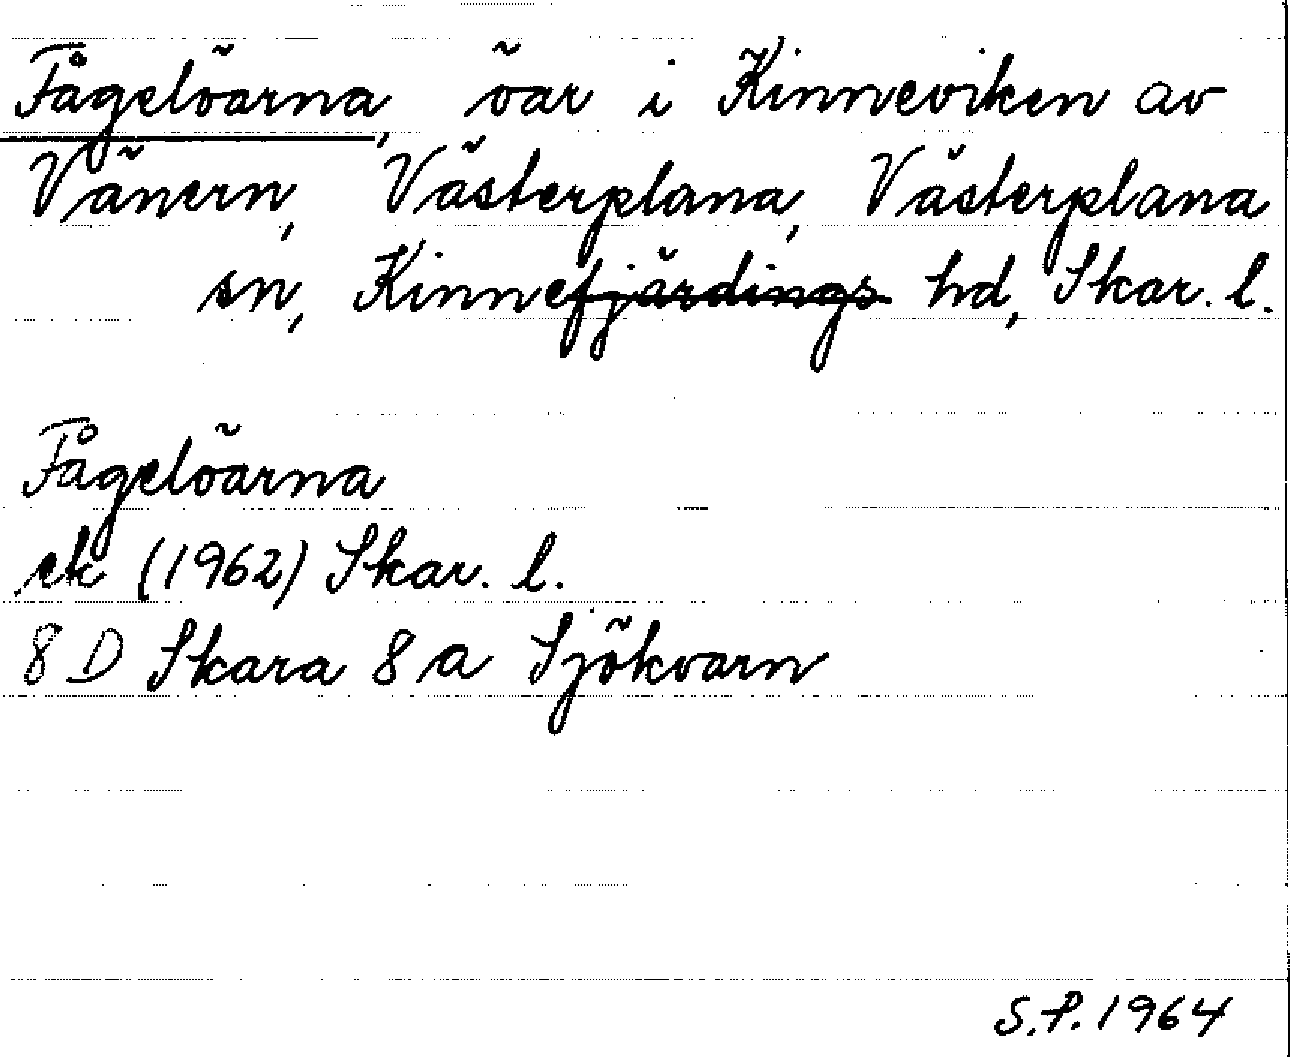 Fågelöarna, öar i Kinneviken av
Vänern, Västerplana, Västerplana
sn, Kinnefjärdings hd, Skar. l.
Fågelöarna
ek (1962) Skar. l.
8 D Skara 8 a Sjökvarn
S.P. 1964